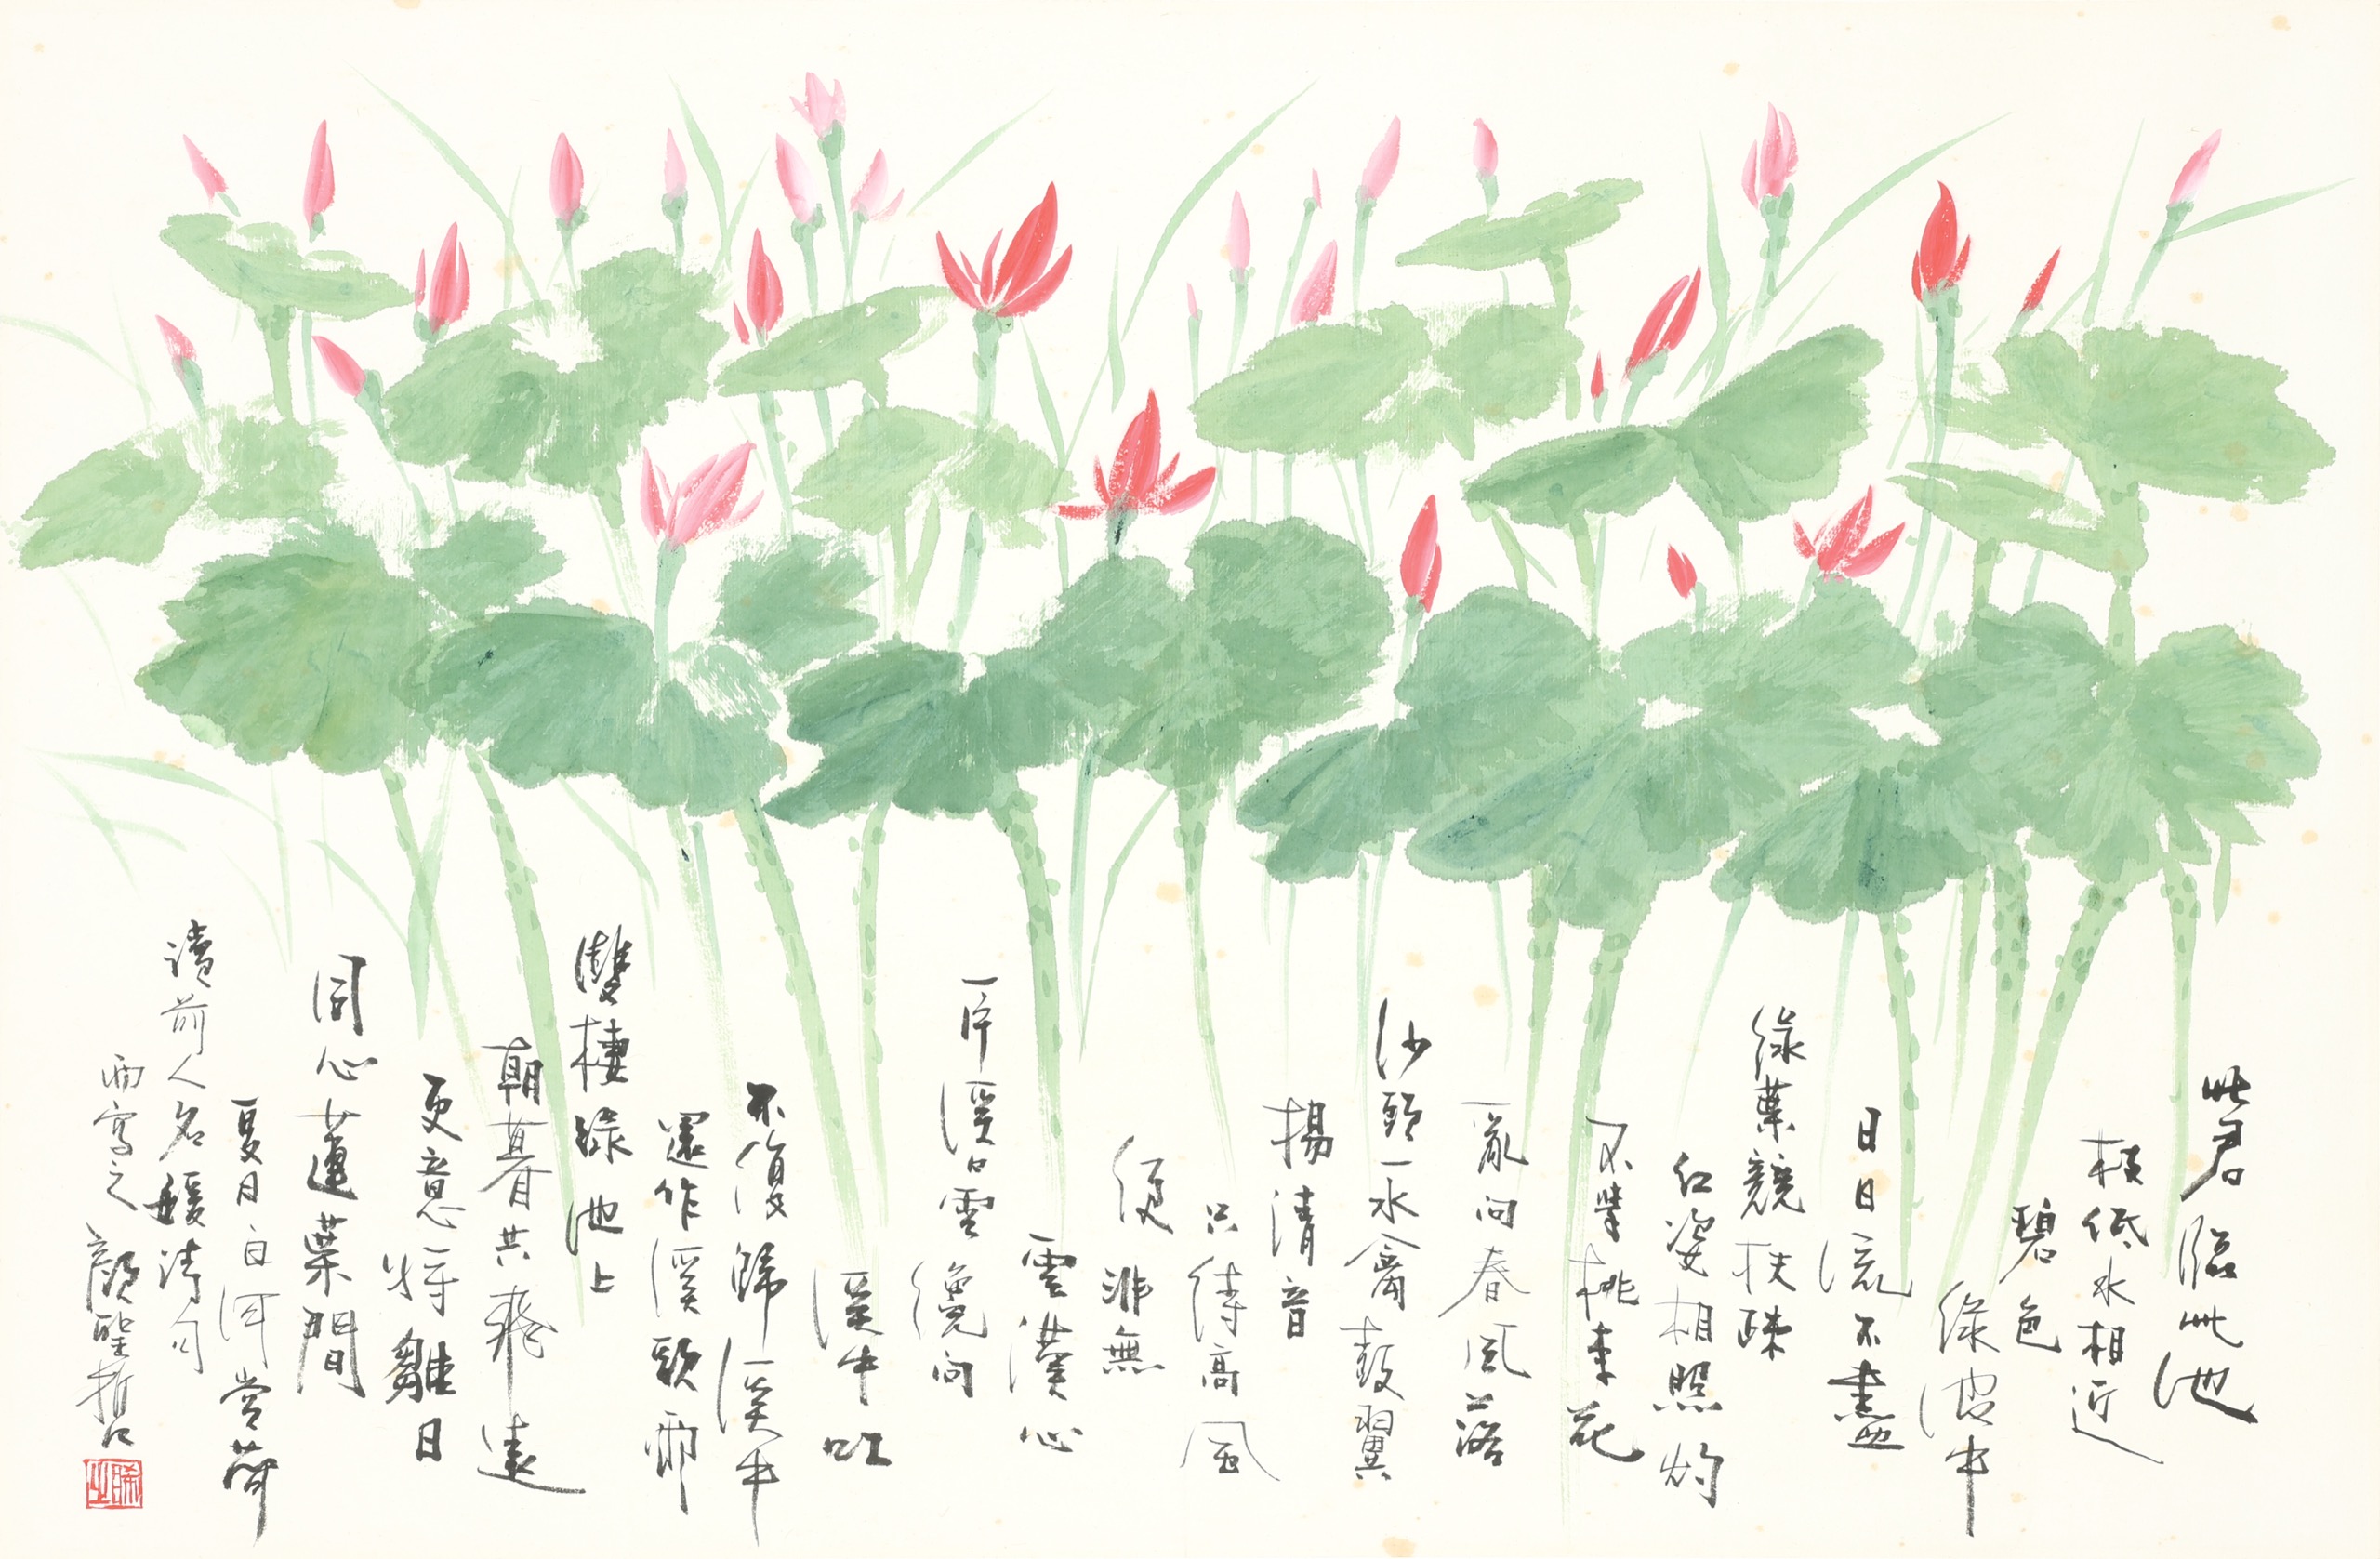 此君臨此池
枝低水相近
碧色
綠波中
日日流不盡
綠葉競扶疎
紅姿相照灼
不學桃李花
亂向春風落
沙頭一水禽鼓翼
揚清音
只待高風
便非無
雲漢心
一片溪口雲
纔向
溪中吐
不復歸溪中
還作溪頭雨
雙棲綠池上
朝暮共飛還
更意將雛日
同心蓮葉間
夏日白河賞荷
讀前人名媛詩句
而寫之 顏聖哲